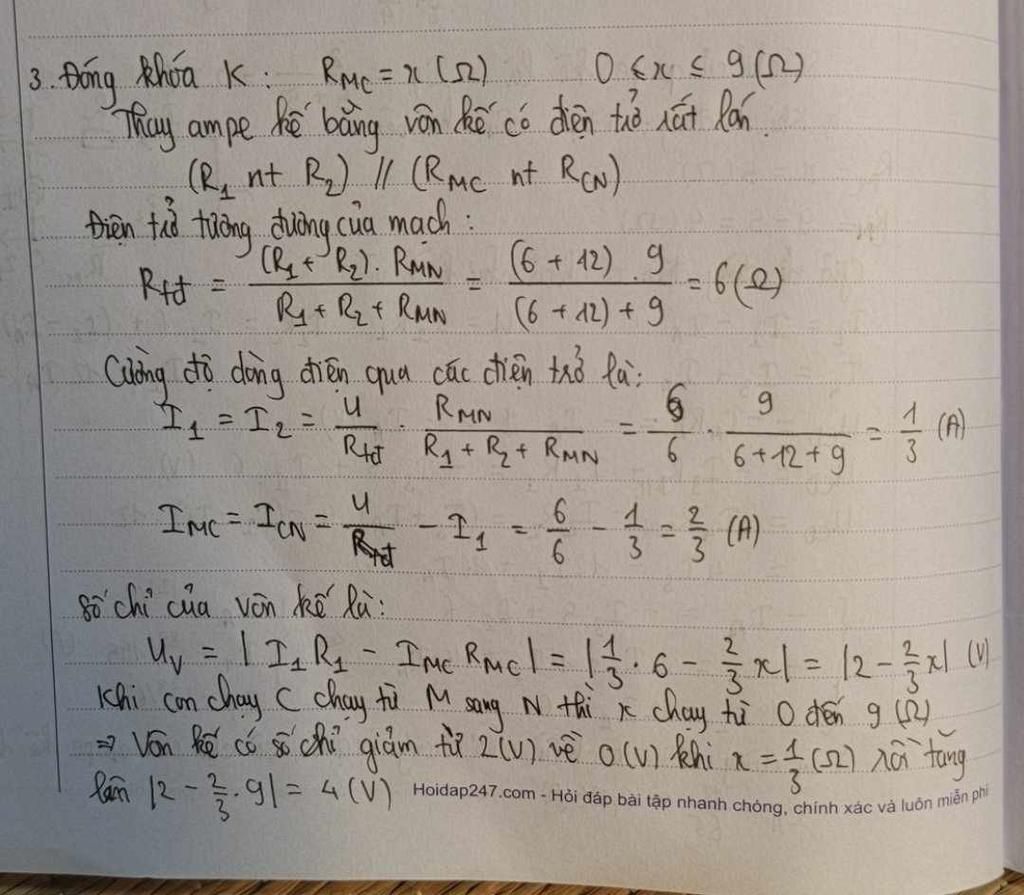 3. Đóng khóa K: R_MC = x (Ω) 0 ≤ x ≤ 9 (Ω)
Thay ampe kế bằng vôn kế có điện trở rất lớn.
(R_1 nt R_2) // (R_MC nt R_CN)
Điện trở tương đương của mạch:
R_tđ = (R_1 + R_2) . R_MN / (R_1 + R_2 + R_MN) = (6 + 12) . 9 / ((6 + 12) + 9) = 6 (Ω)
Cường độ dòng điện qua các điện trở là:
I_1 = I_2 = U / R_tđ . R_MN / (R_1 + R_2 + R_MN) = 6/6 . 9 / (6 + 12 + 9) = 1/3 (A)
I_MC = I_CN = U / R_tđ - I_1 = 6/6 - 1/3 = 2/3 (A)
Số chỉ của vôn kế là:
U_V = | I_1 R_1 - I_MC R_MC | = | 1/3 . 6 - 2/3 x | = | 2 - 2/3 x | (V)
Khi con chạy C chạy từ M sang N thì x chạy từ 0 đến 9 (Ω)
⇒ Vôn kế có số chỉ giảm từ 2 (V) về 0 (V) khi x = 1/3 (Ω) rồi tăng
lên | 2 - 2/3 . 9 | = 4 (V) Hoidap247.com - Hỏi đáp bài tập nhanh chóng, chính xác và luôn miễn phí